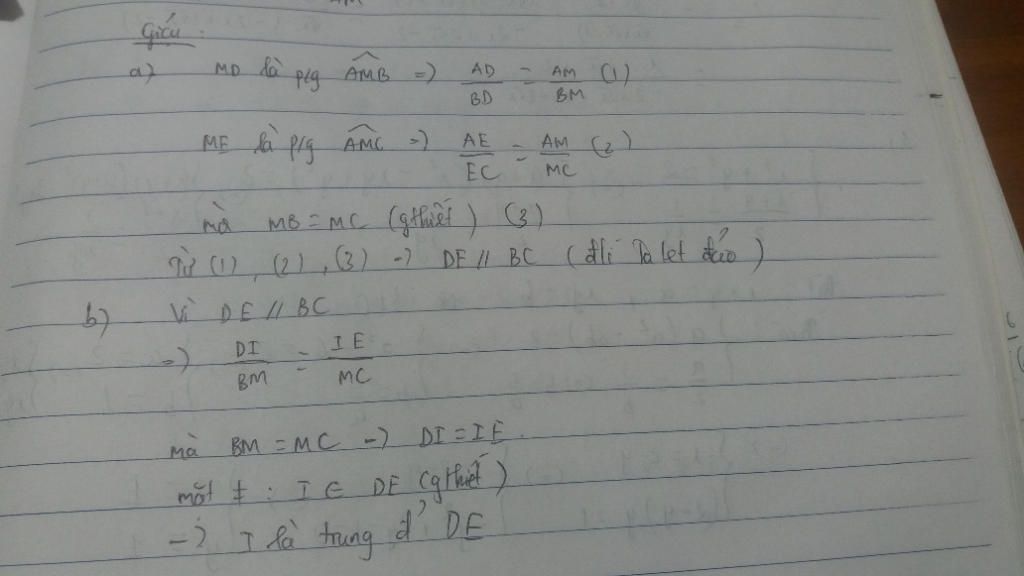 Giải :
a) MD là p/g AMB => AD/BD = AM/BM (1)
ME là p/g AMC => AE/EC = AM/MC (2)
mà MB = MC (gthiết) (3)
Từ (1), (2), (3) -> DE // BC (đlí Talet đảo)
b) Vì DE // BC
-> DI/BM = IE/MC
mà BM = MC -> DI = IE.
mặt ≠ : I ∈ DE (gthiết)
-> I là trung đ' DE